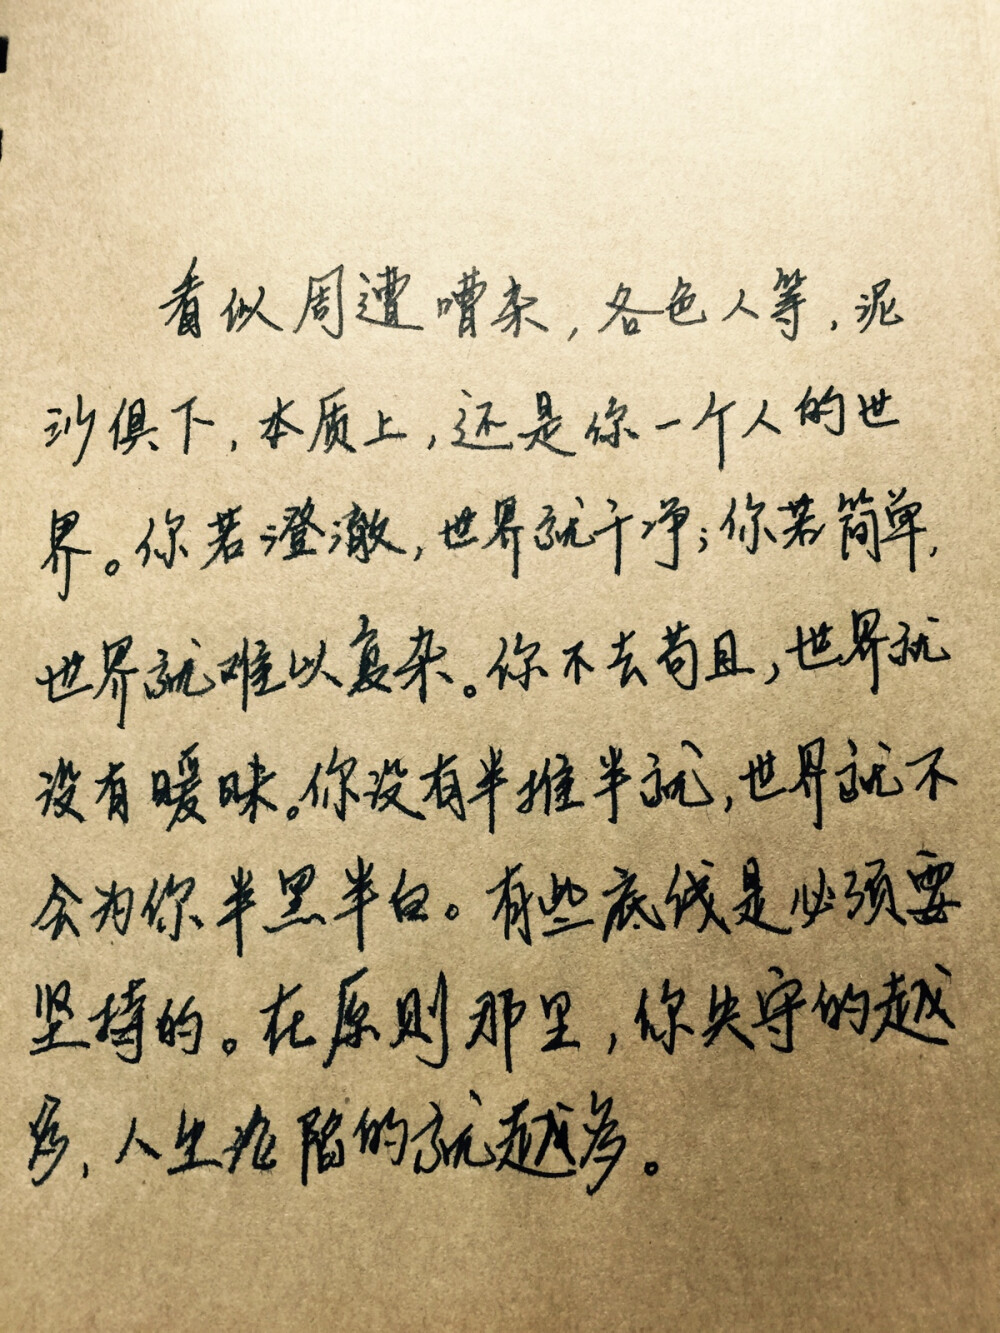 看似周遭嘈杂,各色人等,泥
沙俱下,本质上,还是你一个人的世
界。你若澄澈,世界就干净;你若简单,
世界就难以复杂。你不去苟且,世界就
没有暧昧。你没有半推半就,世界就不
会为你半黑半白。有些底线是必须要
坚持的。在原则那里,你失守的越
多,人生沦陷的就越多。